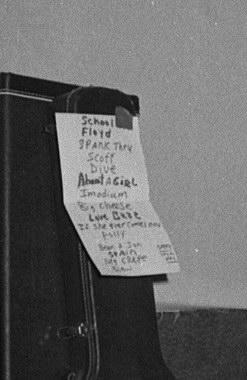 School
Floyd
SPANK Thru
Scoff
Dive
About A GIRL
Imodium
Big cheese
Love Buzz
If she ever comes now
Polly
SPAIN
Blew